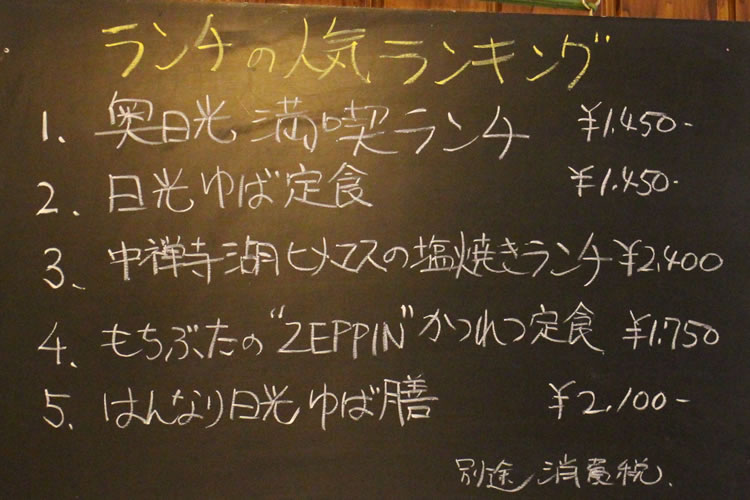 ランチの人気ランキング
1. 奥日光満喫ランチ ¥1.450-
2. 日光ゆば定食 ¥1.450-
3. 中禅寺湖ヒメマスの塩焼きランチ ¥2,400
4. もちぶたの"ZEPPIN"かつれつ定食 ¥1.750
5. はんなり日光ゆば膳 ¥2.100-
別途/消費税.